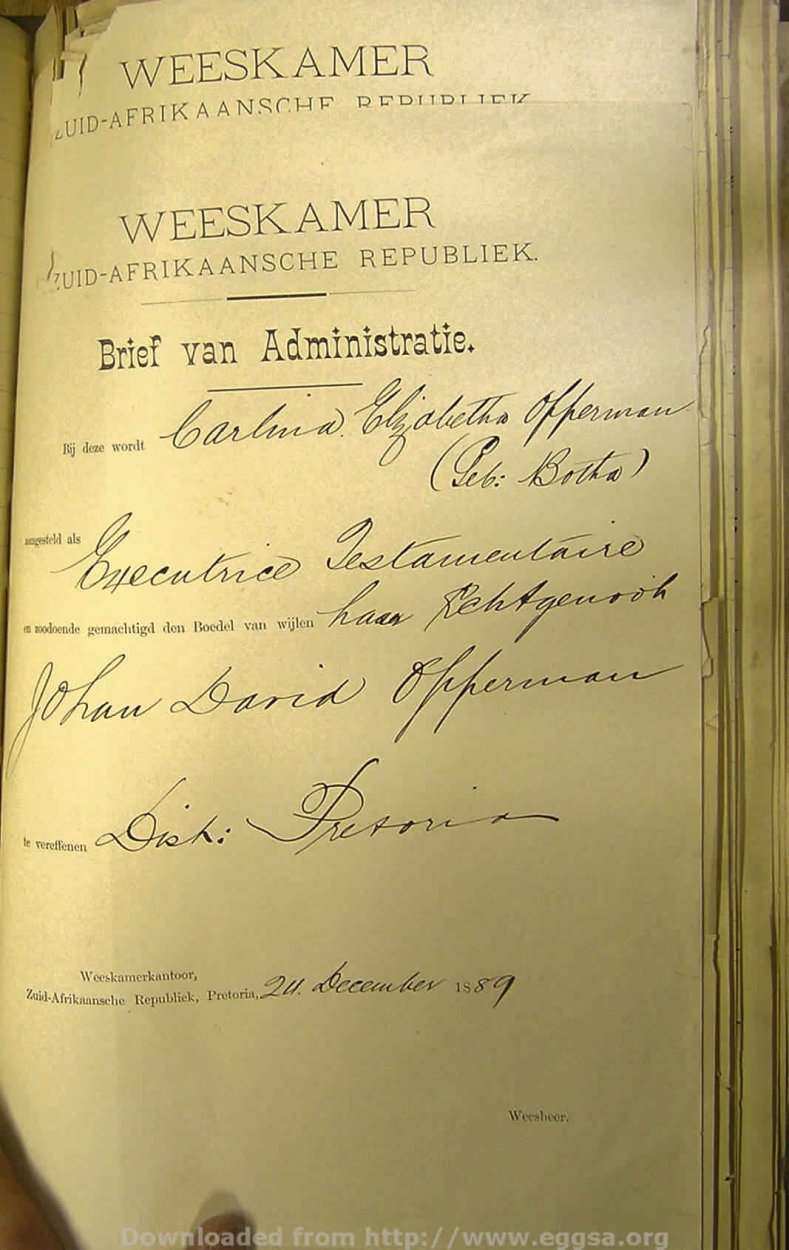 WEESKAMER
ZUID-AFRIKAANSCHE REPUBLIEK
WEESKAMER
ZUID-AFRIKAANSCHE REPUBLIEK.
Brief van Administratie.
Bij deze wordt Carlina Elizabetha Opperman
(Geb: Botha)
aangesteld als Executrice Testamentaire
en zoodoende gemachtigd den Boedel van wijlen haar Echtgenoot
Johan David Opperman
te vereffenen Dist: Pretoria
Weeskamerkantoor,
Zuid-Afrikaansche Republiek, Pretoria, 24 December 1889
Weesheer.
Downloaded from http://www.eggsa.org